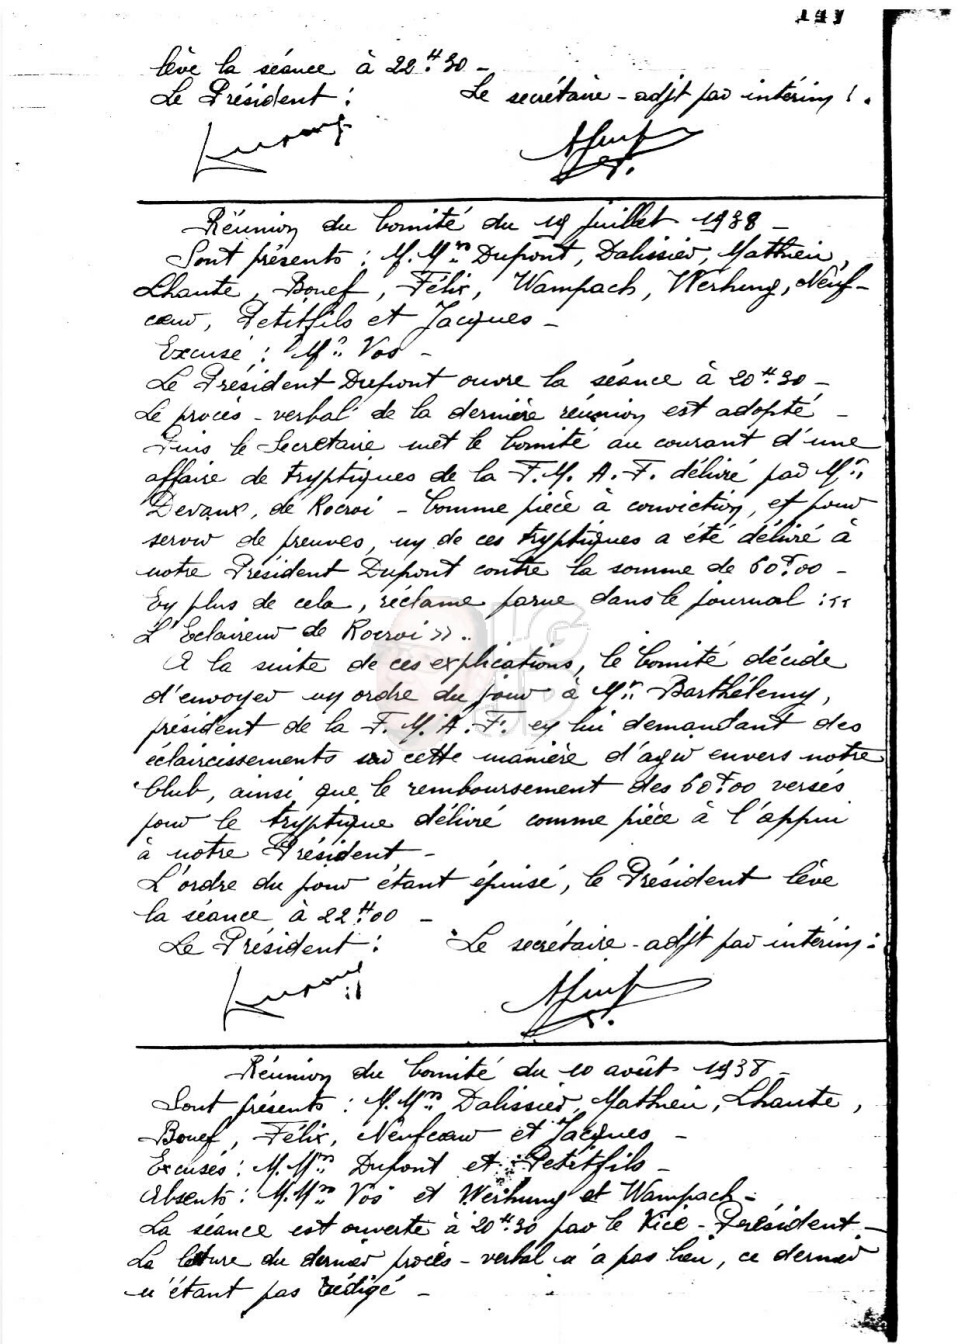 141
lève la séance à 22H30 -
Le Président :     Le secrétaire - adjt par intérim :.
Dupont
Réunion du Comité du 19 juillet 1938 -
Sont présents : M.Mrs Dupont, Dalissier, Mathieu,
Lhante, Bouef, Félix, Wampach, Werhung, Neuf-
cœur, Petitfils et Jacques -
Excusé : Mr Vos -
Le Président Dupont ouvre la séance à 20H30 -
Le procès - verbal de la dernière réunion est adopté -
Puis le Secrétaire met le Comité au courant d'une
affaire de tryptiques de la F. M. A. F. délivré par Mr
Devaux, de Rocroi - Comme pièce à conviction, et pour
servir de preuves, un de ces tryptiques a été délivré à
notre Président Dupont contre la somme de 60F00 -
En plus de cela, réclame parue dans le journal : <<
L'Eclaireur de Rocroi >> ..
A la suite de ces explications, le Comité décide
d'envoyer un ordre du jour à Mr Barthélemy,
président de la F. M. A. F. en lui demandant des
éclaircissements sur cette manière d'agir envers notre
Club, ainsi que le remboursement des 60F00 versés
pour le tryptique délivré comme pièce à l'appui
à notre Président -
L'ordre du jour étant épuisé, le Président lève
la séance à 22H00 -
Le Président :     Le secrétaire - adjt par intérim :
Dupont
Réunion du Comité du 10 août 1938 -
Sont présents : M.Mrs Dalissier, Mathieu, Lhante,
Bouef, Félix, Neufcœur et Jacques -
Excusés : M.Mrs Dupont et Petitfils -
Absents : M.Mrs Vos et Werhung et Wampach -
La séance est ouverte à 20H30 par le Vice - Président -
La lecture du dernier procès - verbal n'a pas lieu, ce dernier
n'étant pas rédigé -